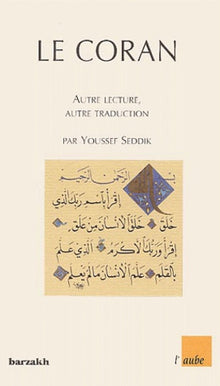 LE CORAN
AUTRE LECTURE,
AUTRE TRADUCTION
PAR YOUSSEF SEDDIK
الرحمن الرحيم
اقرأ باسم ربك الذي
خلق خلق الانسان من علق
اقرأ وربك الاكرم الذي علم
بالقلم علم الانسان ما لم يعلم
barzakh
l'aube